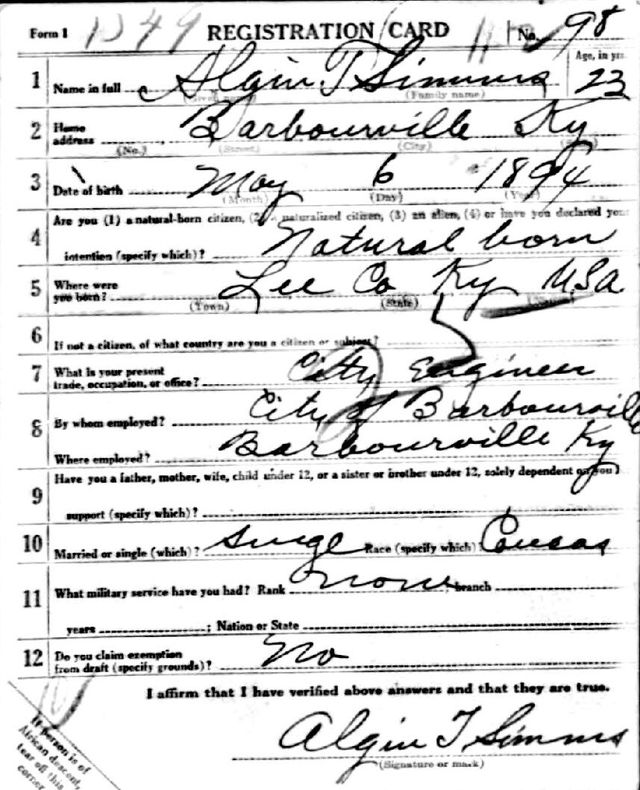 Form 1 1349 REGISTRATION CARD No. 98
1 Name in full Algin T Simms Age, in yrs. 23
(Given name) (Family name)
2 Home address Barbourville Ky
(No.) (Street) (City)
3 Date of birth May 6 1894
(Month) (Day) (Year)
4 Are you (1) a natural-born citizen, (2) a naturalized citizen, (3) an alien, (4) or have you declared your
intention (specify which)? Natural born
5 Where were you born? Lee Co Ky USA
(Town) (State)
6 If not a citizen, of what country are you a citizen or subject?
7 What is your present trade, occupation, or office? City Engineer
8 By whom employed? City of Barbourville
Where employed? Barbourville Ky
9 Have you a father, mother, wife, child under 12, or a sister or brother under 12, solely dependent on you
support (specify which)?
10 Married or single (which)? Single Race (specify which) Caucas
11 What military service have you had? Rank none branch
years ; Nation or State
12 Do you claim exemption from draft (specify grounds)? No
I affirm that I have verified above answers and that they are true.
Algin T Simms
(Signature or mark)
If person is of
African descent,
tear off this
corner